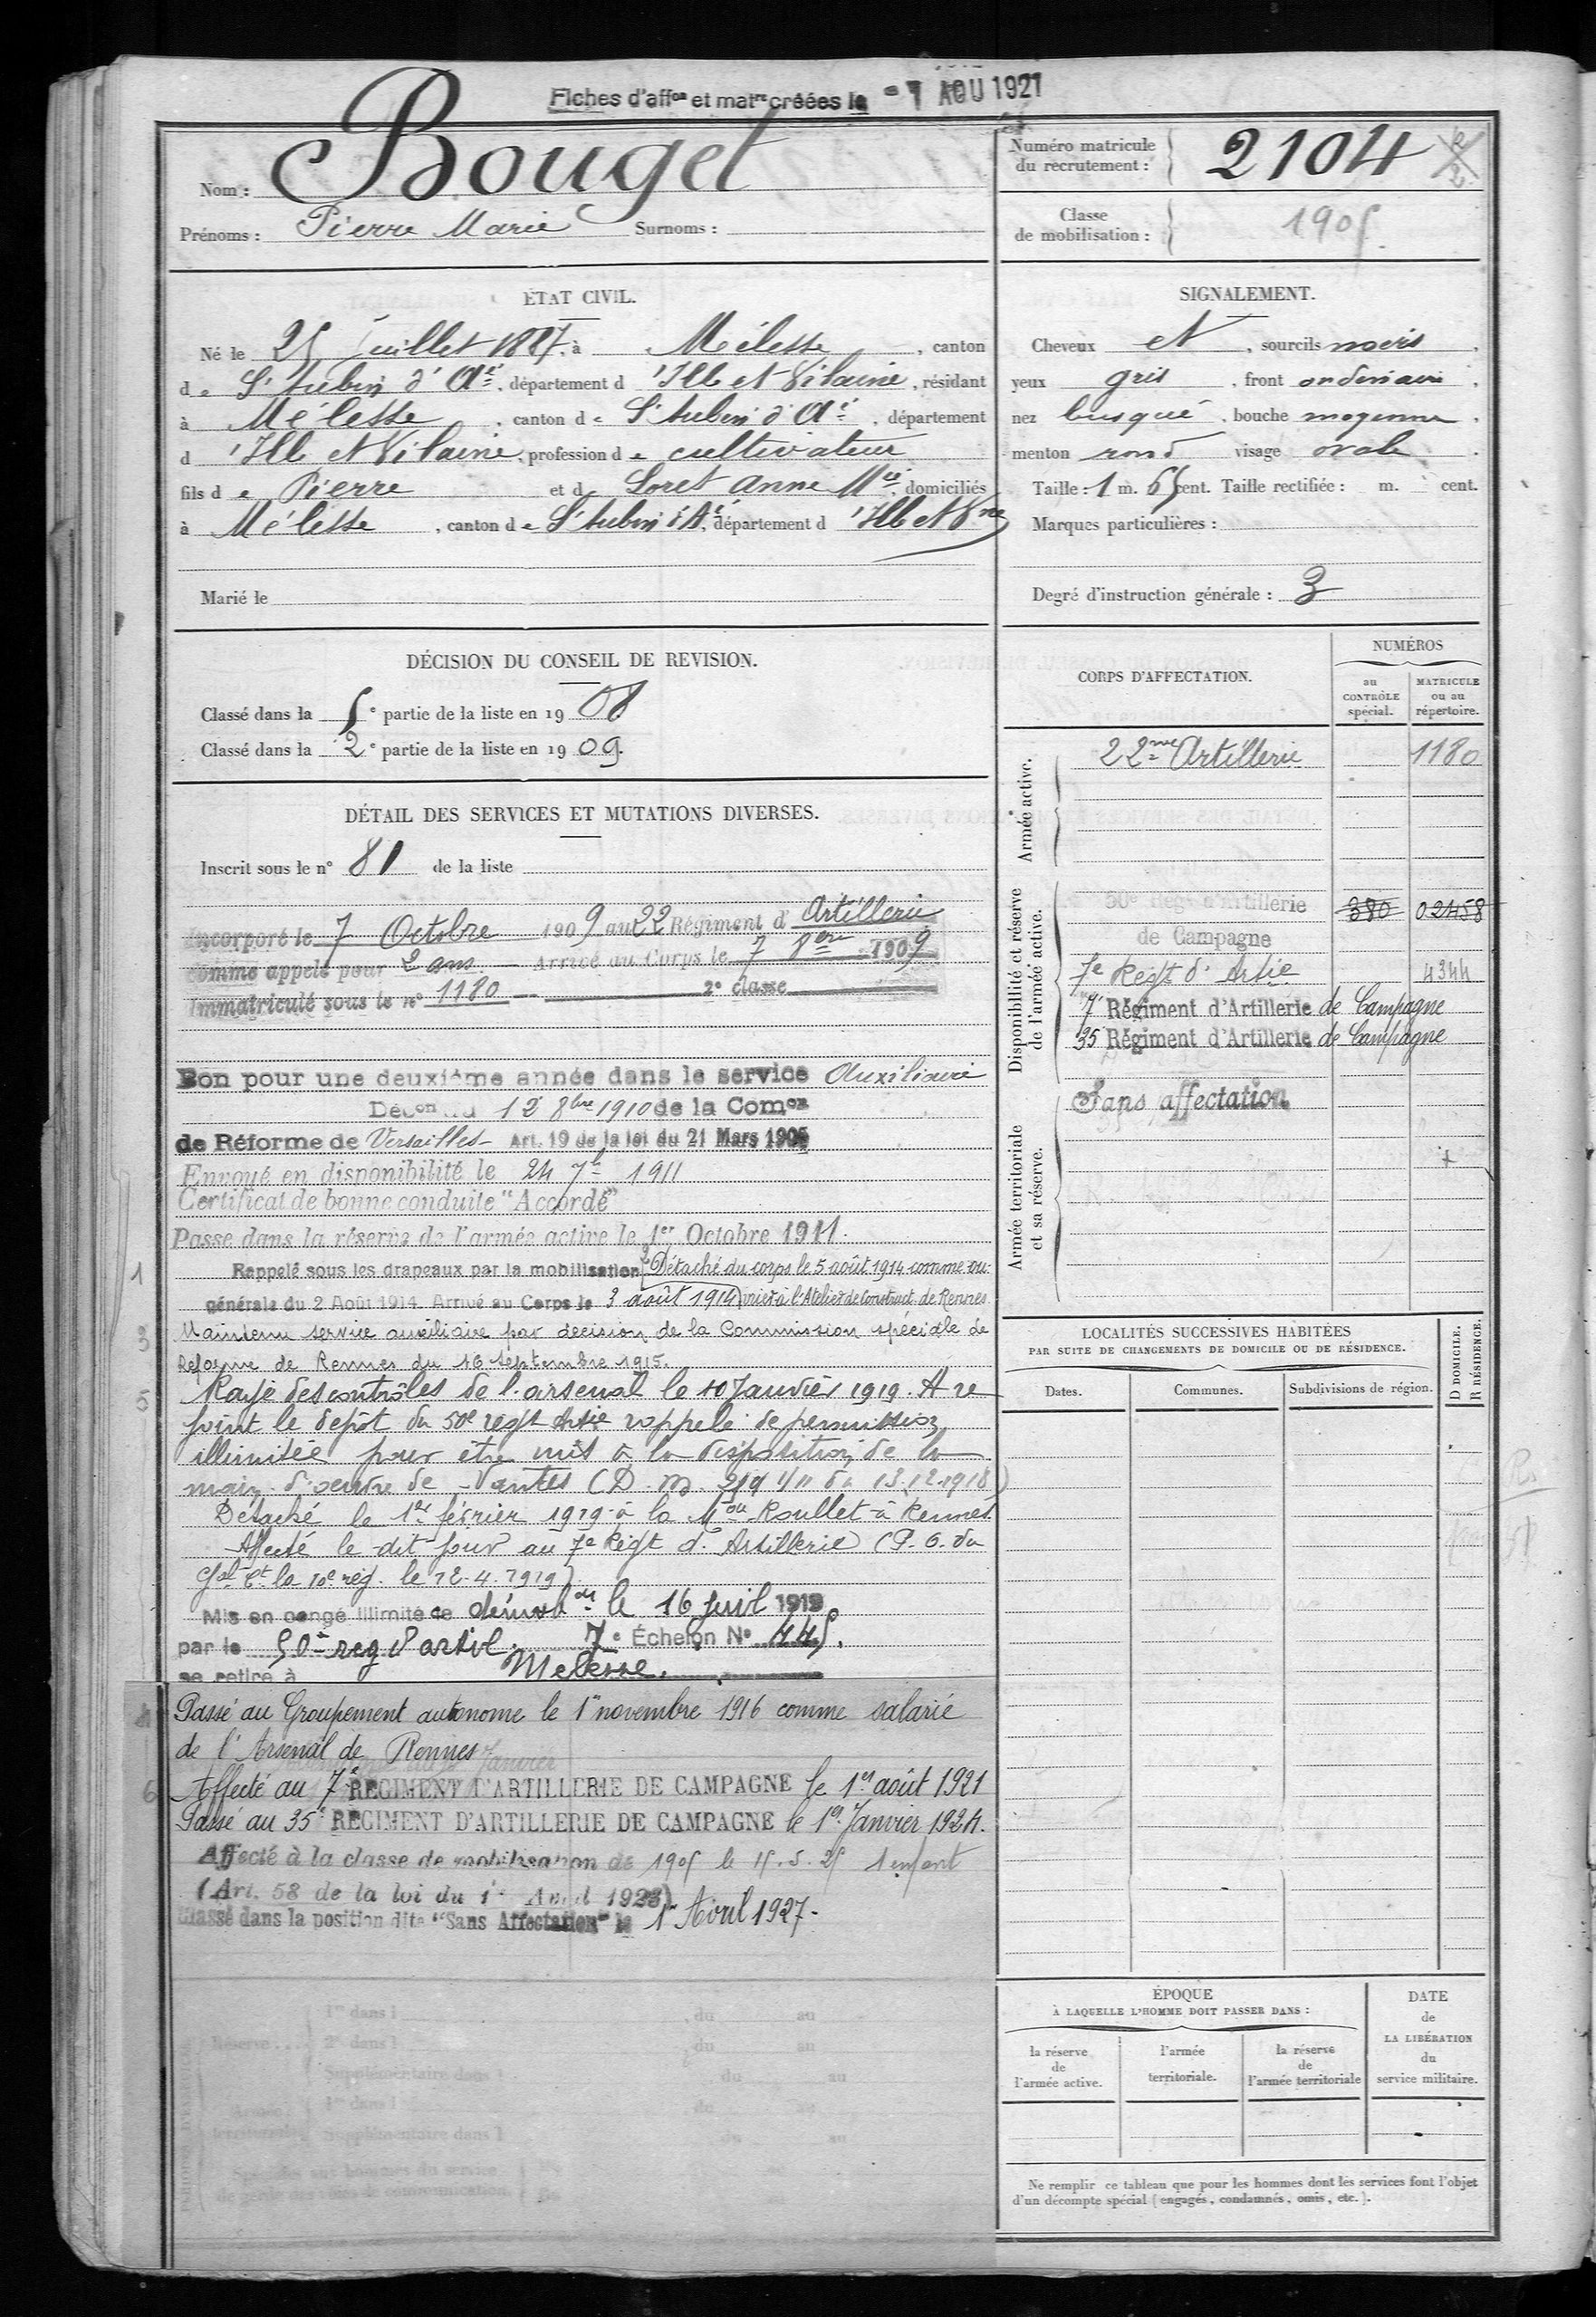 Fiches d'affon et matre créées le - 1 AOU 1921
Nom : Bouget
Prénoms : Pierre Marie Surnoms :
Numéro matricule du recrutement : 2104
Classe de mobilisation : 1905
ÉTAT CIVIL.
Né le 25 Juillet 1887, à Melesse, canton
de St Aubin d'Até, département d'Ille et Vilaine, résidant
à Melesse, canton de St Aubin d'Até, département
d'Ille et Vilaine, profession de cultivateur
fils de Pierre et d Loret Anne Mie, domiciliés
à Mélesse, canton de St Aubin d'A, département d'Ille et Vne
Marié le
SIGNALEMENT.
Cheveux et, sourcils noirs,
yeux gris, front ordinaire,
nez busqué, bouche moyenne,
menton rond visage ovale.
Taille : 1 m. 65 cent. Taille rectifiée : m. cent.
Marques particulières :
Degré d'instruction générale : 3
DÉCISION DU CONSEIL DE REVISION.
Classé dans la 5e partie de la liste en 1908
Classé dans la 2e partie de la liste en 1909.
DÉTAIL DES SERVICES ET MUTATIONS DIVERSES.
Inscrit sous le n° 81 de la liste
Incorporé le 7 Octobre 1909 au 22 Régiment d'Artillerie
comme appelé pour 2 ans Arrivé au Corps le 7 8bre 1909
Immatriculé sous le n° 1180 2e classe
Bon pour une deuxième année dans le service Auxiliaire
Décon du 12 8bre 1910 de la Comon
de Réforme de Versailles - Art. 19 de la loi du 21 Mars 1905
Envoyé en disponibilité le 24 7b 1911
Certificat de bonne conduite "Accordé"
Passe dans la réserve de l'armée active le 1er Octobre 1911.
1 Rappelé sous les drapeaux par la mobilisation Détaché du corps le 5 août 1914 comme ou-
générale du 2 Août 1914 Arrivé au Corps le 3 août 1914 vrier à l'Atelier de Construct. de Rennes
3 Maintenu service auxiliaire par décision de la Commission spéciale de
Réforme de Rennes du 16 septembre 1915.
5 Rayé des contrôles de l'arsenal le 10 Janvier 1919. A re
joint le dépôt du 50e regt Artie rappelé de permission
illimitée pour être mis à la disposition de la
main d'oeuvre de Nantes (D. M. 219 1/11 du 13.12.1918)
Détaché le 1er février 1919 à la Mon Roullet à Rennes
Affecté le dit jour au 7e Régt d'Artillerie (P. O. du
Gal Ct la 10e rég. le 12.4.1919)
Mis en congé illimité de démobon le 16 Juil 1919
par le 50e reg d'artil. 7e Échelon N° 445.
se retire à Melesse.
4 Passé au Groupement autonome le 1er novembre 1916 comme salarié
de l'Arsenal de Rennes
6 Affecté au 7e RÉGIMENT D'ARTILLERIE DE CAMPAGNE le 1er août 1921
Passé au 35e RÉGIMENT D'ARTILLERIE DE CAMPAGNE le 1er Janvier 1924.
Affecté à la classe de mobilisation de 1905 le 15.5.25 1 enfant
(Art. 58 de la loi du 1er Avril 1923)
Classé dans la position dite "Sans Affectation" le 1er Avril 1927.
CORPS D'AFFECTATION.
NUMÉROS
au CONTRÔLE spécial.
MATRICULE ou au répertoire.
Armée active.
22me Artillerie 1180
Disponibilité et réserve de l'armée active.
50e Régt d'Artillerie 380 02458
de Campagne
7e Regt d'Artie 4344
7e Régiment d'Artillerie de Campagne
35 Régiment d'Artillerie de Campagne
Armée territoriale et sa réserve.
Sans affectation
LOCALITÉS SUCCESSIVES HABITÉES
PAR SUITE DE CHANGEMENTS DE DOMICILE OU DE RÉSIDENCE.
Dates. Communes. Subdivisions de région.
D DOMICILE. R RÉSIDENCE.
ÉPOQUE
À LAQUELLE L'HOMME DOIT PASSER DANS :
la réserve de l'armée active.
l'armée territoriale.
la réserve de l'armée territoriale
DATE de LA LIBÉRATION du service militaire.
Ne remplir ce tableau que pour les hommes dont les services font l'objet
d'un décompte spécial (engagés, condamnés, omis, etc.).